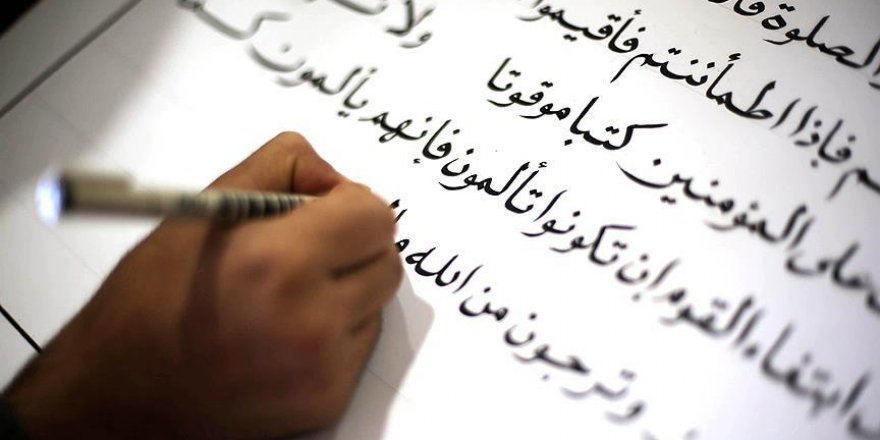 الصلوة
فإذا اطمأننتم فأقيموا
على المؤمنين كتبا موقوتا ولا
ابتغاء القوم إن تكونوا تألمون فإنهم يألمون
وترجون من الله